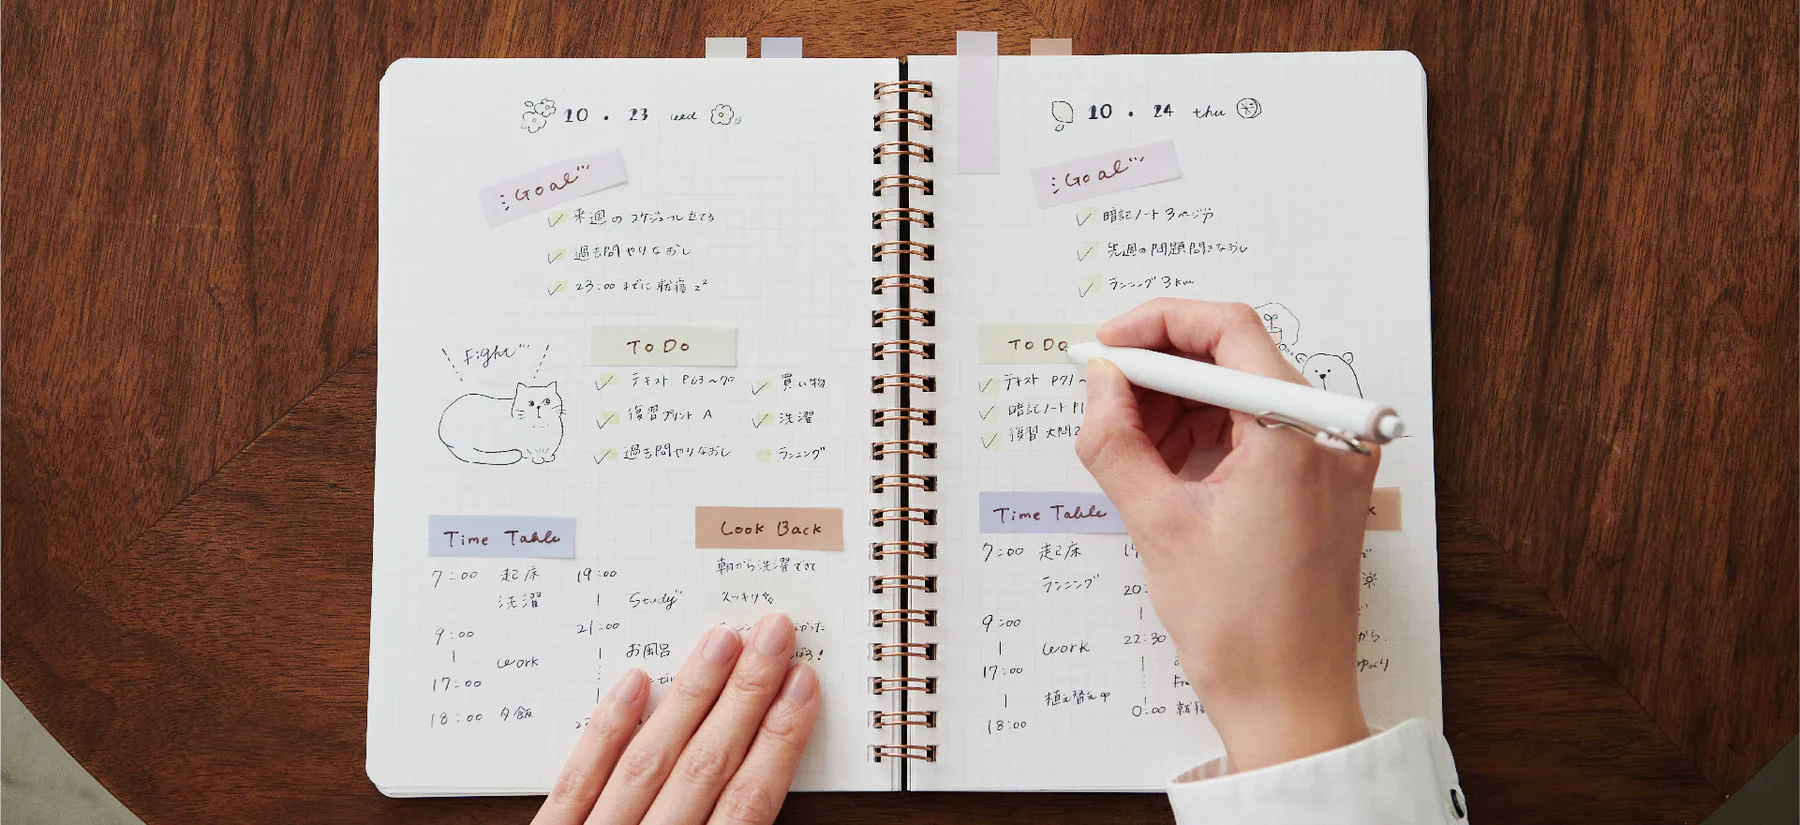 10 . 23 wed
Goal
来週の スケジュール 立てる
過去問やりなおし
23:00 までに 就寝 z²
Fight
To Do
テキスト P63〜70
復習プリント A
過去問やりなおし
買い物
洗濯
ランニング
Time Table
7:00 起床
洗濯
9:00
work
17:00
18:00 夕飯
19:00
Study
21:00
お風呂
Look Back
朝から洗濯できて
スッキリ
10 . 24 thu
Goal
暗記ノート 3ページ分
先週の問題解きなおし
ランニング 3km
To Do
テキスト P71〜
暗記ノート P1
復習 大問2
Time Table
7:00 起床
ランニング
9:00
work
17:00
植え替え
18:00
20:
22:30
0:00 就寝
から、
ゆっくり